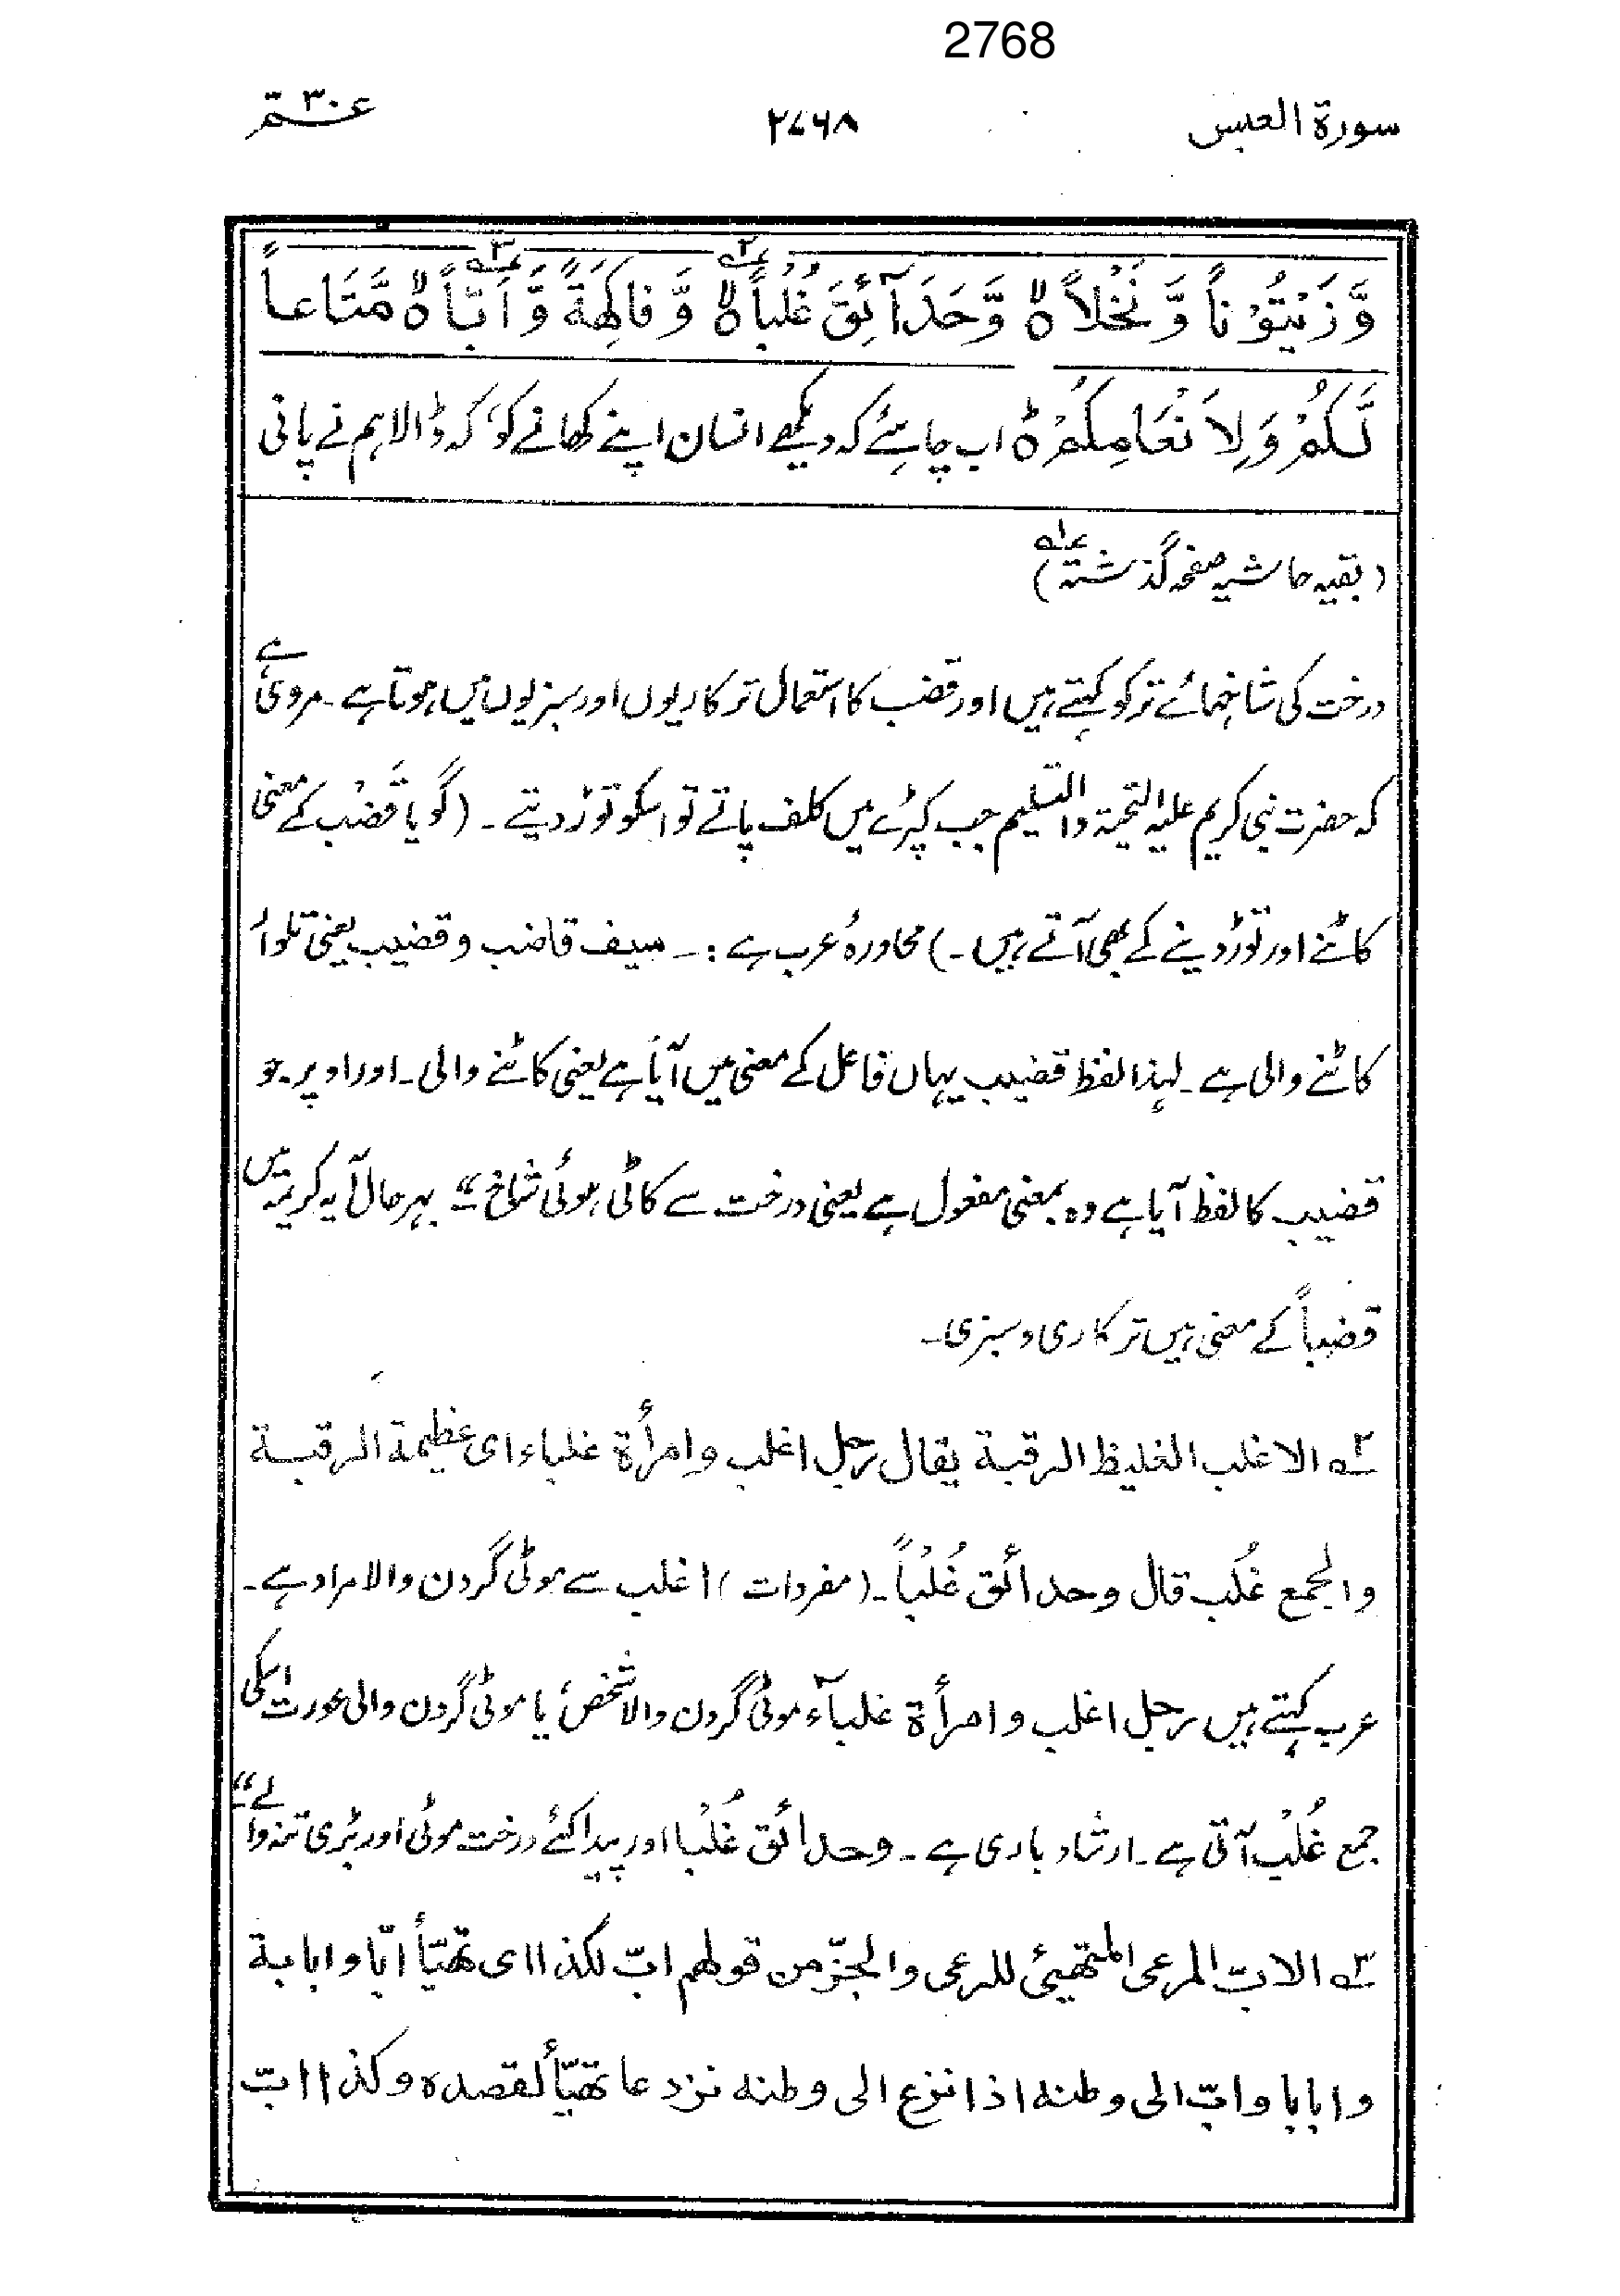 2768
سورۃ العبس ۲۷۶۸ عــمّ ۳۰
وَّ زَیْتُوْناً وَّ نَخْلاًہ وَّحَدَآئِقَ غُلْباًہ وَّ فاکِهَةً وَّ اَبّاًہ مَّتَاعاً
لَّکُمْ وَلِاَنْعَامِکُمْہ اب چاہئے کہ دیکھے انسان اپنے کھانے کو، کہ ڈالا ہم نے پانی
(بقیہ حاشیہ صفحہ گذشتہ) ۱؎
درخت کی شاخہائے تر کو کہتے ہیں اور قضب کا استعمال ترکاریوں اور سبزیوں میں ہوتا ہے۔ مروی ہے
کہ حضرت نبی کریم علیہ التحیۃ والتسلیم جب کپڑے میں کلف پاتے تو اسکو توڑ دیتے۔ (گویا قَضْب کے معنی
کاٹنے اور توڑ دینے کے بھی آتے ہیں۔) محاورۂ عرب ہے :۔ سیف قاضب و قضیب یعنی تلوار
کاٹنے والی ہے۔ لہذا لفظ قضیب یہاں فاعل کے معنی میں آیا ہے یعنی کاٹنے والی۔ اور اوپر جو
قضیب کا لفظ آیا ہے وہ بمعنی مفعول ہے یعنی درخت سے کاٹی ہوئی شاخ ”۔ بہر حال آیہ کریمہ میں
قضباً کے معنی ہیں ترکاری و سبزی۔
۲؎ الاغلب الغلیظ الرقبة یقال رجل اغلب وامرأة غلباء ای عظیمة الرقبة
والجمع غُلب قال وحدائق غُلْباً۔ (مفردات) اغلب سے موٹی گردن والا مراد ہے۔
عرب کہتے ہیں رجل اغلب و امرأة غلبآء موٹی گردن والا شخص یا موٹی گردن والی عورت اسکی
جمع غُلْب آتی ہے۔ ارشاد باری ہے۔ وحدائق غُلْبا اور پیدا کئے درخت موٹی اور بڑی تنہ والے“
۳؎ الابّ المرعی المتهیئ للرعی والجزّ من قولهم ابّ لکذا ای تهیّأ ابّا وابابة
وابابا وابّ الی وطنه اذا نزع الی وطنه نزدعا تهیّأ لقصده وکذا ابّ